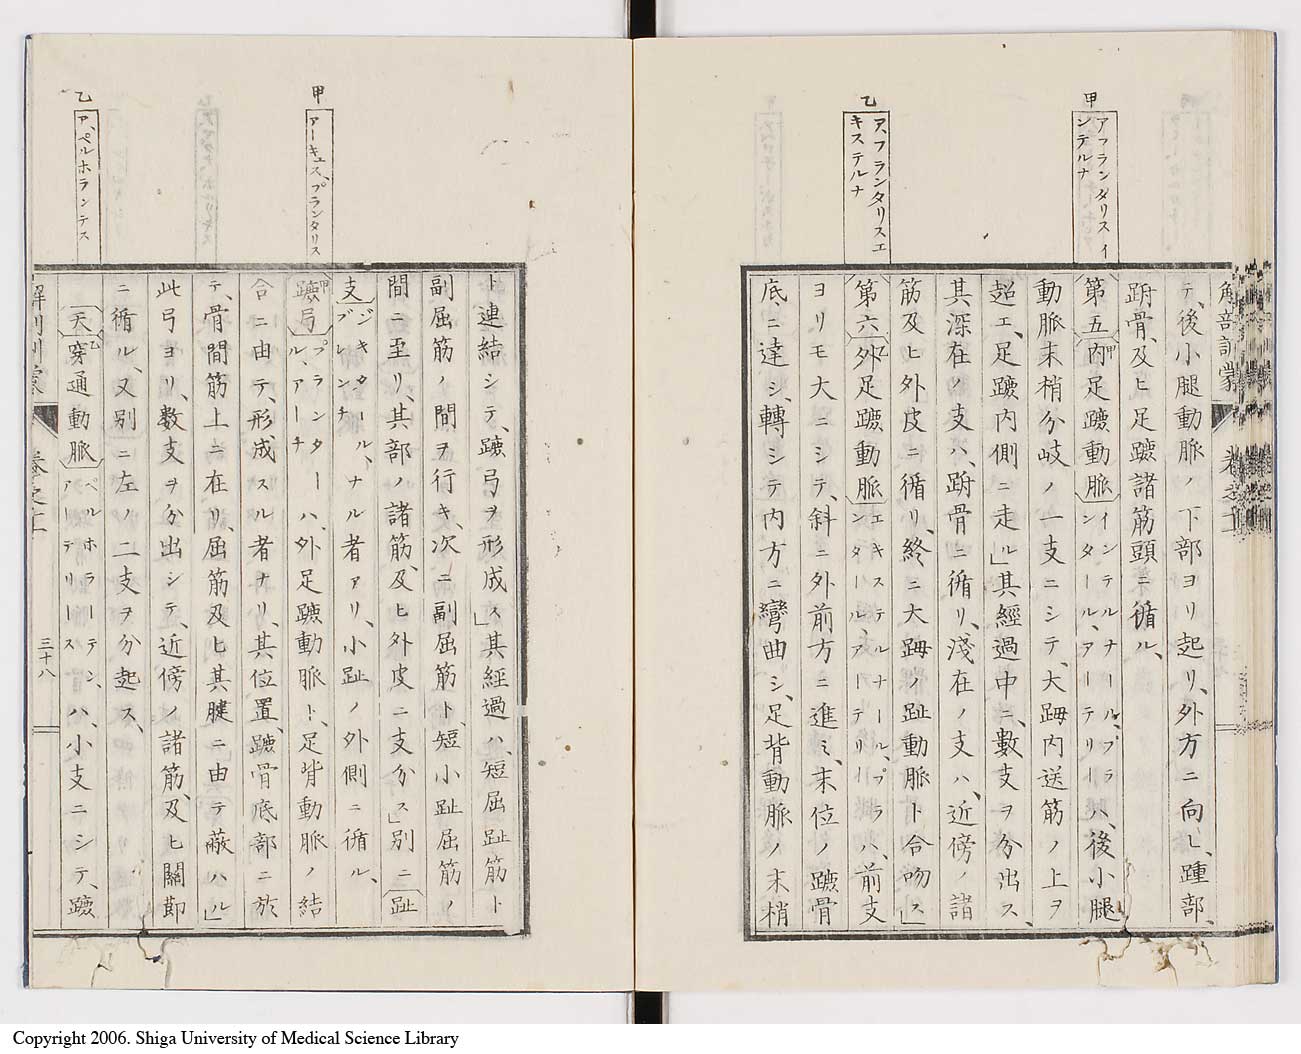 甲
アフランダリスイ
ンテルナ
乙
ア、フランタリスエ
キステルナ
解剖訓蒙
卷之十
テ、後小腿動脈ノ下部ヨリ起リ、外方ニ向ヒ、踵部、
跗骨、及ヒ足蹠諸筋頭ニ循ル、
第五 甲内足蹠動脈 インテルナール、プラ
ンタール、アーテリー ハ、後小腿
動脈末梢分岐ノ一支ニシテ、大踇内送筋ノ上ヲ
超エ、足蹠内側ニ走ル」其經過中ニ、數支ヲ分出ス、
其深在ノ支ハ、跗骨ニ循リ、淺在ノ支ハ、近傍ノ諸
筋及ヒ外皮ニ循リ、終ニ大踇ノ趾動脈ト合吻ス」
第六 乙外足蹠動脈 エキステルナール、プラ
ンタール、アーテリー ハ、前支
ヨリモ大ニシテ、斜ニ外前方ニ進ミ、末位ノ蹠骨
底ニ達シ、轉シテ内方ニ彎曲シ、足背動脈ノ末梢
甲
アーキュス、プランタリス
乙
ア、ペルホランテス
ト連結シテ、蹠弓ヲ形成ス」其經過ハ、短屈趾筋ト
副屈筋ノ間ヲ行キ、次ニ副屈筋ト、短小趾屈筋ノ
間ニ至リ、其部ノ諸筋、及ヒ外皮ニ支分ス」別ニ趾
支 ジキタール、
ブレンチ ナル者アリ、小趾ノ外側ニ循ル、
甲蹠弓 プランター
ル、アーチ ハ、外足蹠動脈ト、足背動脈ノ結
合ニ由テ、形成スル者ナリ、其位置、蹠骨底部ニ於
テ、骨間筋上ニ在リ、屈筋及ヒ其腱ニ由テ蔽ハル」
此弓ヨリ、數支ヲ分出シテ、近傍ノ諸筋、及ヒ關節
ニ循ル、又別ニ左ノ二支ヲ分起ス、
天 乙穿通動脈 ペルホラーテン、
アーテリース ハ、小支ニシテ、蹠
解剖訓蒙
卷之十
三十八
Copyright 2006. Shiga University of Medical Science Library